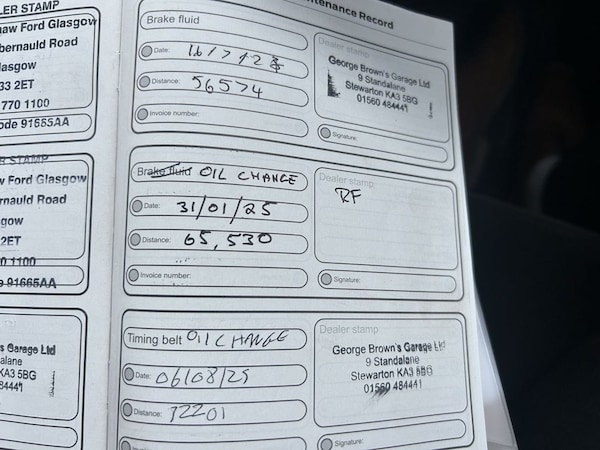 ntenance Record
LER STAMP
aw Ford Glasgow
bernauld Road
lasgow
33 2ET
770 1100
ode 91665AA
Brake fluid
Date:
Distance: 56574
Invoice number:
Dealer stamp
George Brown's Garage Ltd
9 Standalane
Stewarton KA3 5BG
01560 484441
Signature:
R STAMP
w Ford Glasgow
rnauld Road
gow
2ET
0 1100
91665AA
Brake fluid OIL CHANGE
Date: 31/01/25
Distance: 65,530
Invoice number:
Dealer stamp
RF
Signature:
s Garage Ltd
alane
KA3 5BG
84441
Timing belt OIL CHANGE
Date: 06/08/25
Distance: 72201
Invoice number:
Dealer stamp
George Brown's Garage Ltd
9 Standalane
Stewarton KA3 5BG
01560 484441
Signature: